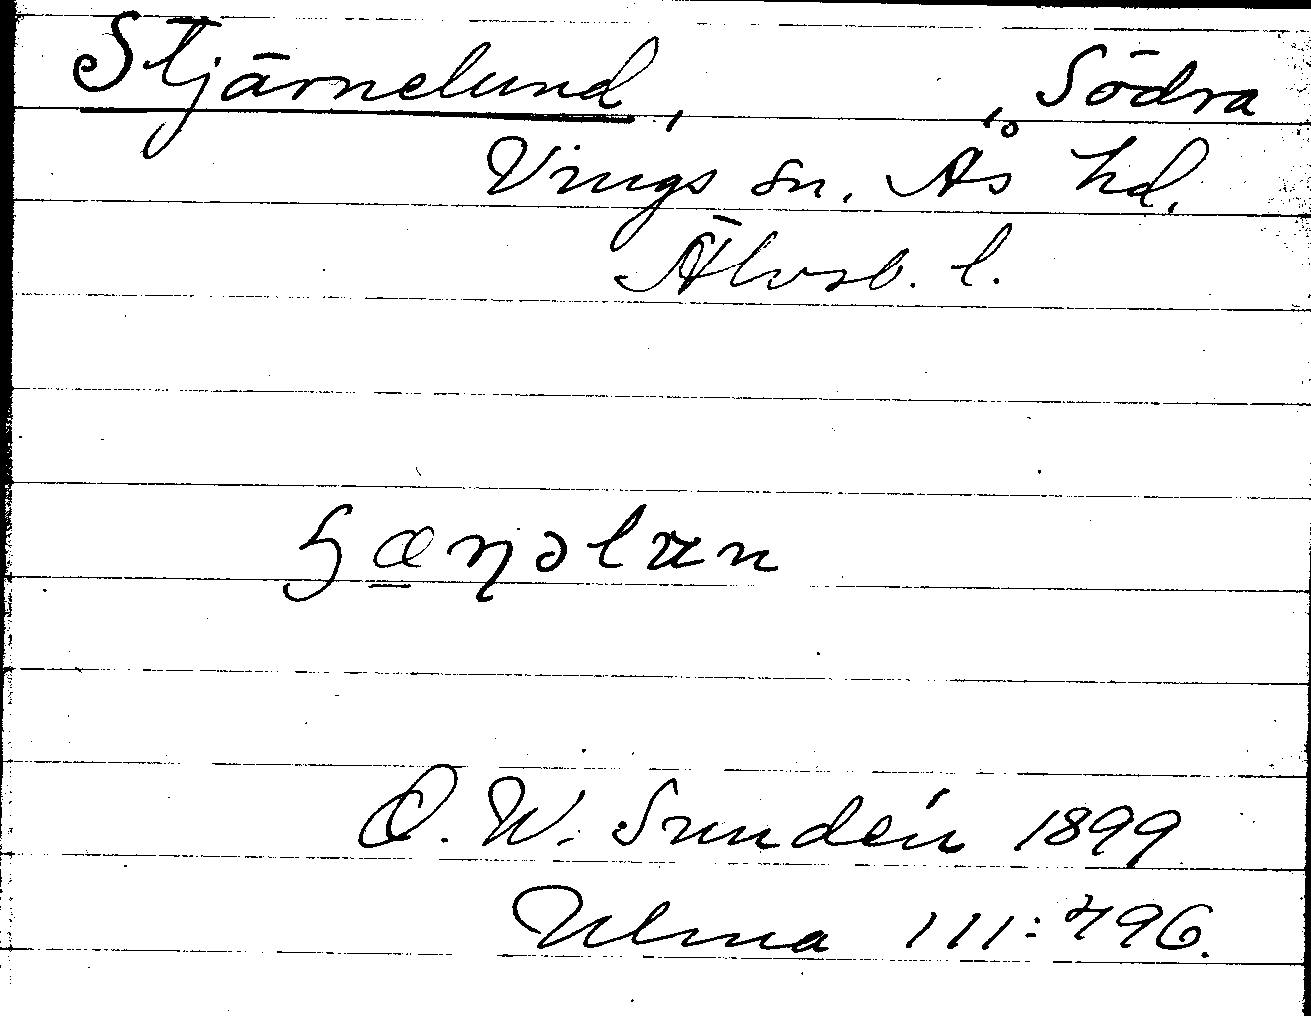 Stjärnelund, , Södra
Vings sn. Ås hd.
Älvsb. l.
O. W. Sundén 1899
Ulma 111:796.